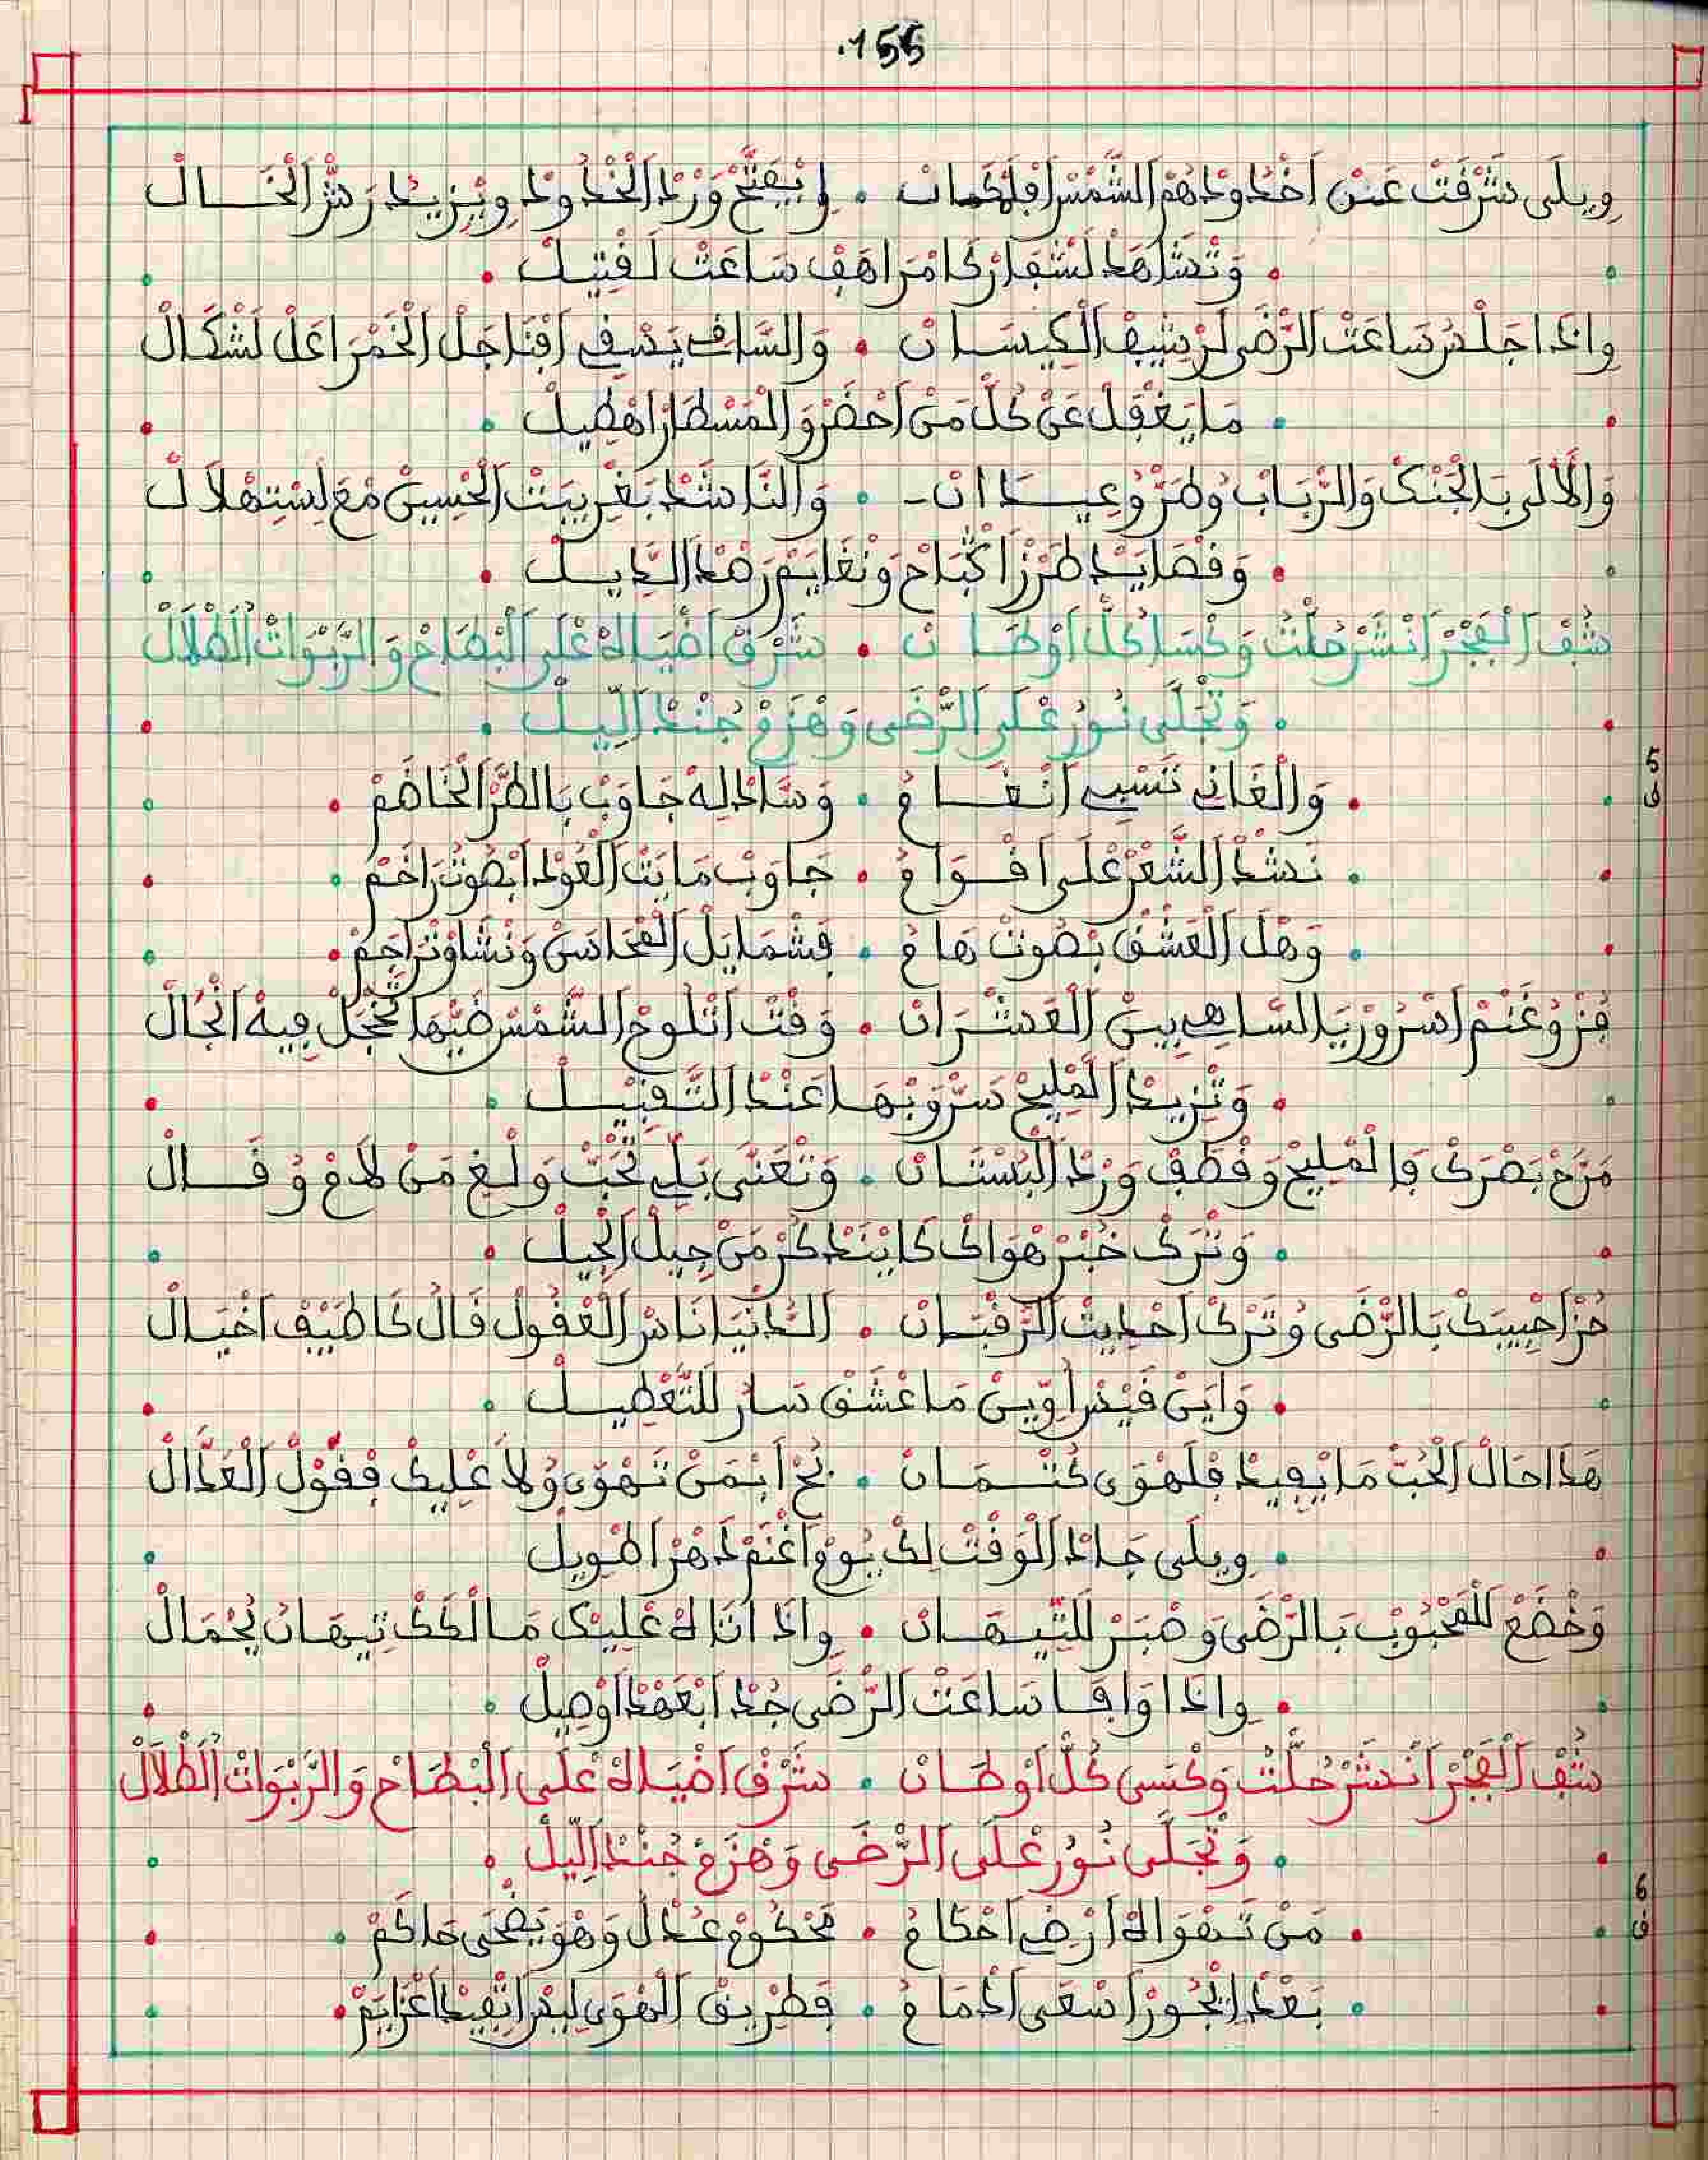 155
ويلى شرقت عن اخدودهم الشمس افلكمان • ايفتح ورد الخدود ويزيد رشر الخال
وتشاهد لشفار كا مراهف ساعت لفتيل
واذا جلس ساعت الرضى لرشيف الكيسان • والساقي يسقي اقناجل الخمر اعل لشكال
ما يغفل عن كل من احضر والمسطار اهطيل
والالى بالجنك والرباب وطر وعيدان • والناشد بغريبت الحسين مع لستهلال
وقصايد طرز اكباح ونغايم رصد الديل
شف الفجر انشر حلت وكسا كل اوطان • شرق اضياه على البطاح والربوات الطلال
وتجلى نور على الرضى وهزم جند اليل
5
ق
والغاني تنسي انغام • وساد ليه جاوب بالطر الخاضم
نشد الشعر على اقوام • جاوب ما بت العود ابصوت راخم
وهل العشق بصوت هام • فشمايل المحاسن ونشاو تراحم
فز وغنم اسرور يالساهي بين العشران • وقت اتلوح الشمس ضيها تخجل فيه انجال
وتزيد المليح سر وبها عند التقبيل
مزح بصرك فالمليح وقطف ورد البستان • وتغنى بلي تحب ولغ من لام وقال
وترك خبر هواك كايتذكر من جيل الجيل
حز احبيبك بالرضى وترك احديث الرقبان • الدنيا ناس العقول قال كاطيف اخيال
واين قيس اوين ما عشق سار للتعطيل
هذا حال الحب ما يفيد فلهوى كتمان • بح ابمن تهوى ولا عليك فقول العذال
ويلى جاد الوقت لك يوم اغنم دهر اطويل
وخضع للمحبوب بالرضى وصبر للتيهان • واذا اتاه عليك مالكك تيهان بجمال
واذا وافا ساعت الرضى جد ابعهد اوصيل
شف الفجر انشر حلت وكسى كل اوطان • شرق اضياه على البطاح والربوات الطلال
وتجلى نور على الرضى وهزم جند اليل
6
ق
من تهواه ارضي احكام • محكوم عدل وهو يضحى حاكم
بعد الجور اسقى ادمام • فطريق الهوى ليس اتفيد اعزايم